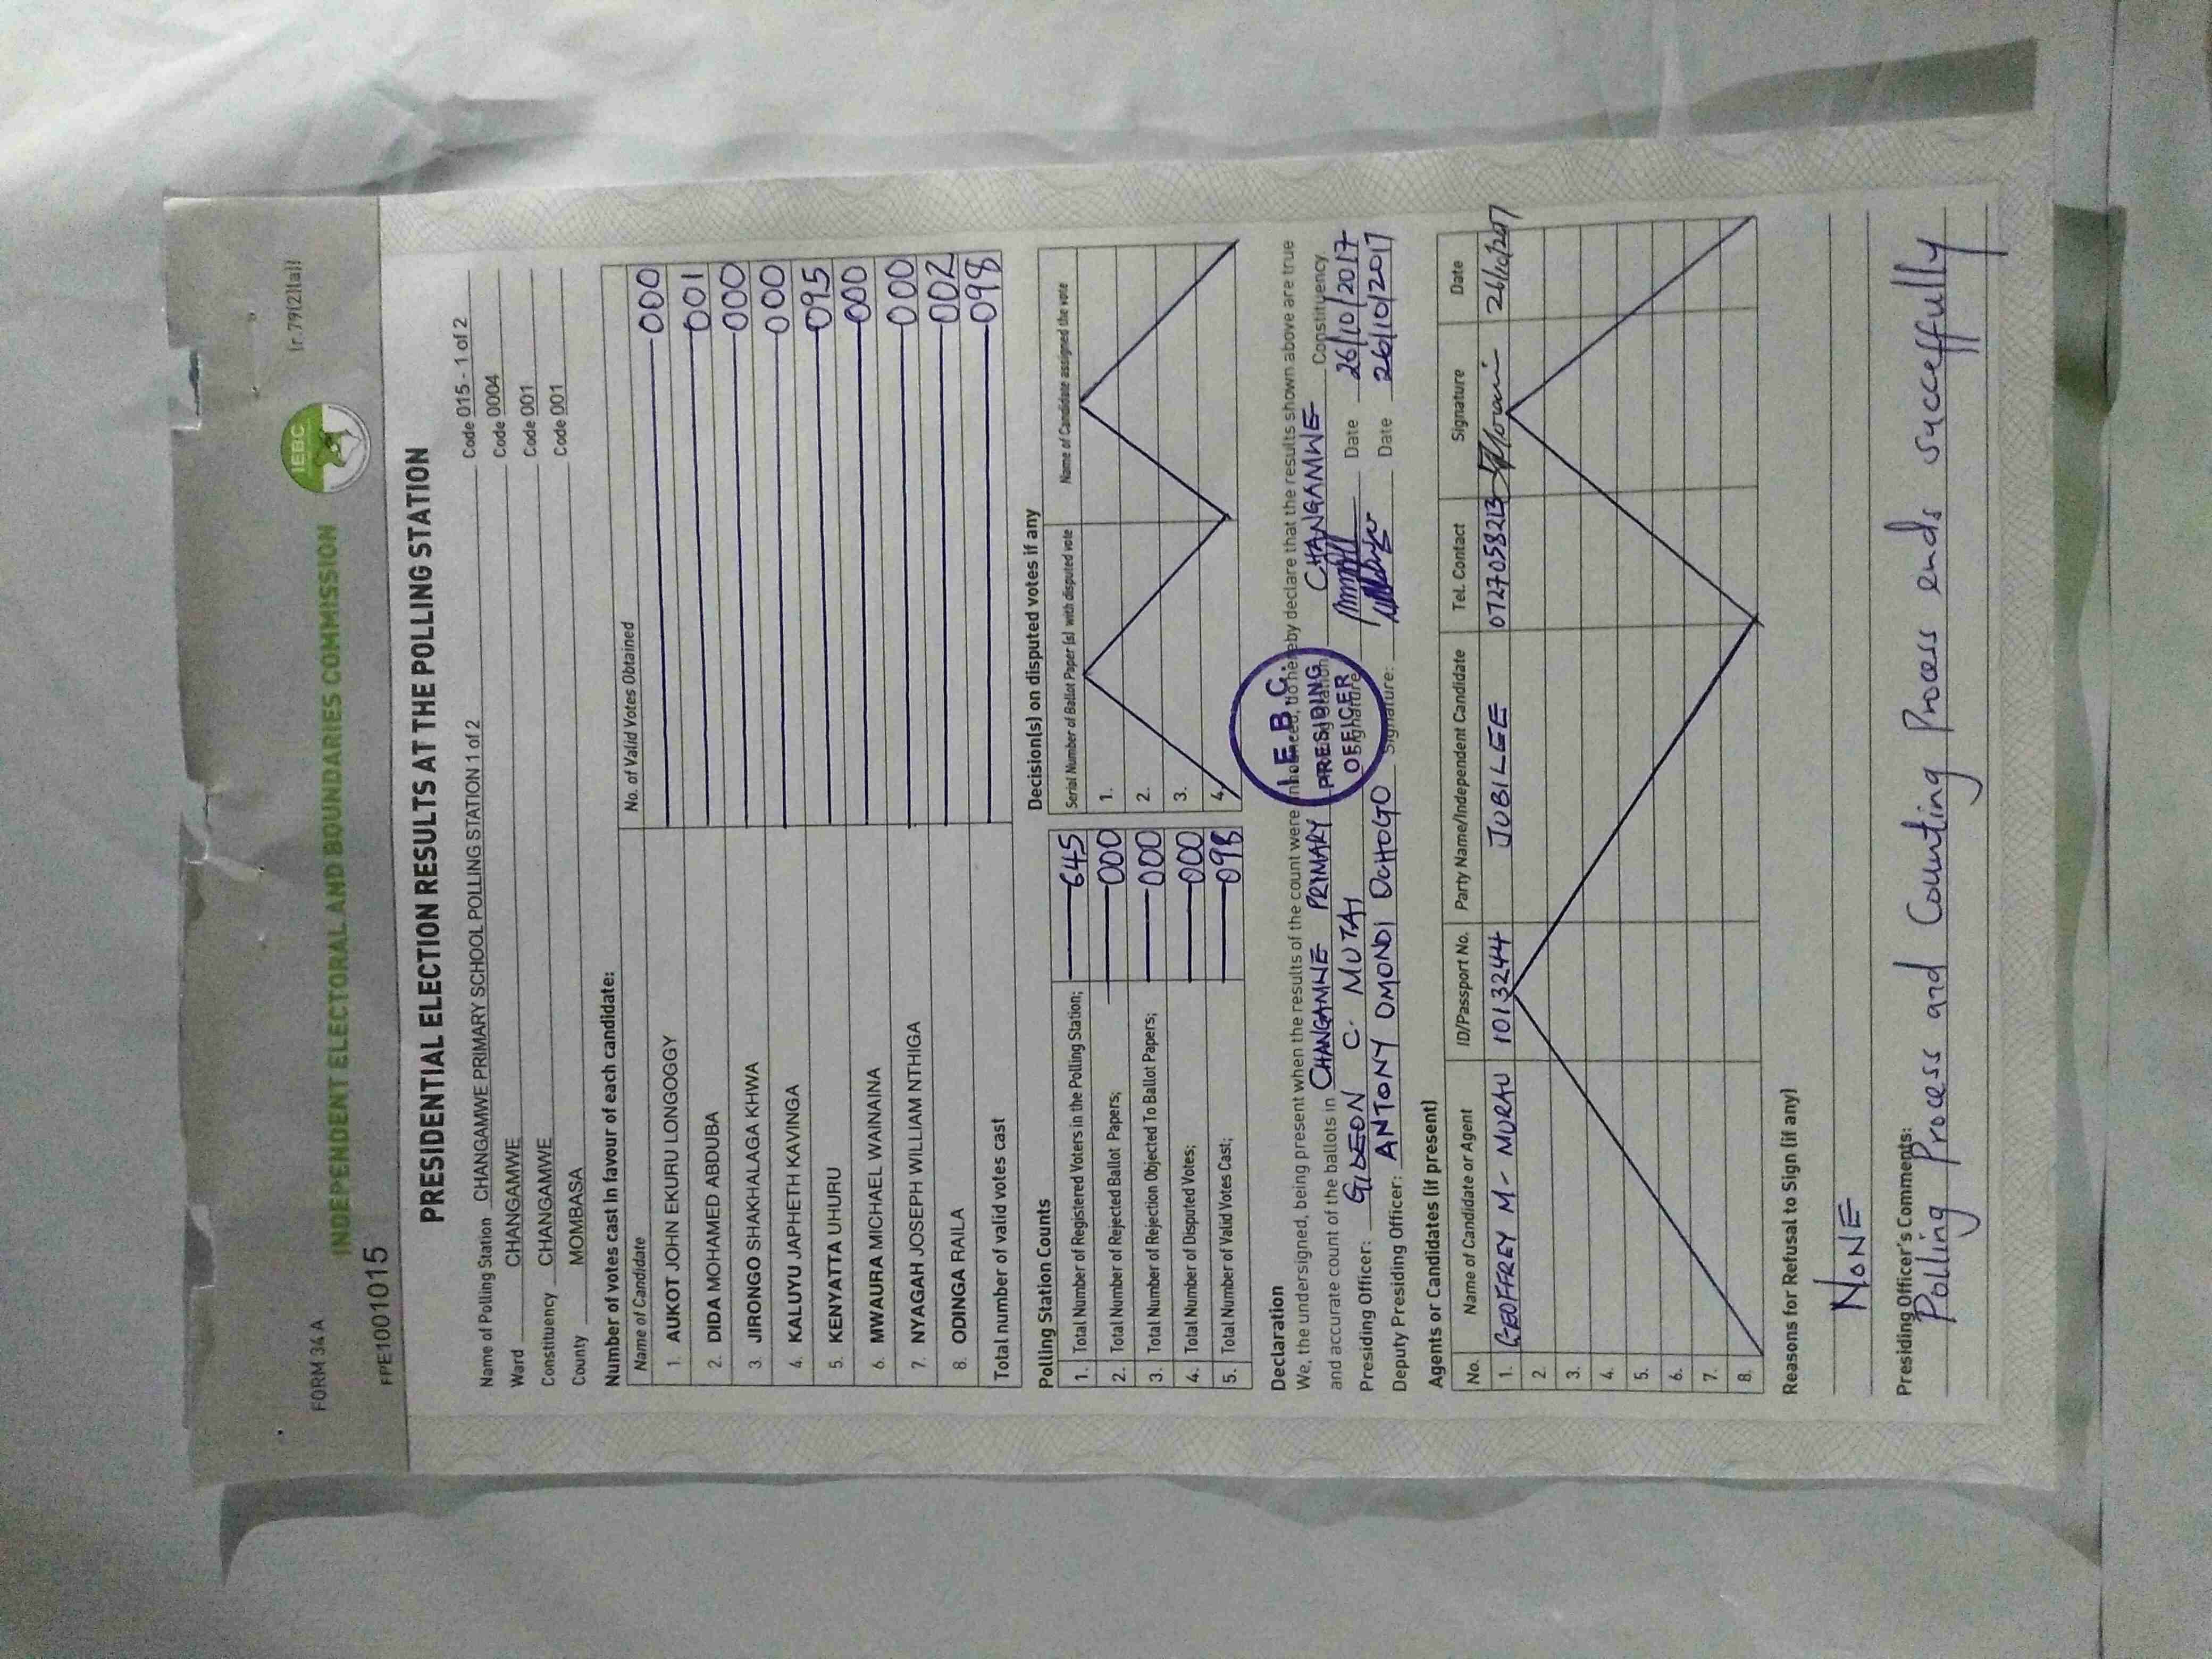 FORM 34 A
(r.79(2)(a))
IEBC
INDEPENDENT ELECTORAL AND BOUNDARIES COMMISSION
FPE1001015
PRESIDENTIAL ELECTION RESULTS AT THE POLLING STATION
Name of Polling Station CHANGAMWE PRIMARY SCHOOL POLLING STATION 1 of 2 Code 015 - 1 of 2
Ward CHANGAMWE Code 0004
Constituency CHANGAMWE Code 001
County MOMBASA Code 001
Number of votes cast in favour of each candidate:
Name of Candidate No. of Valid Votes Obtained
1. AUKOT JOHN EKURU LONGOGGY 000
2. DIDA MOHAMED ABDUBA 001
3. JIRONGO SHAKHALAGA KHWA 000
4. KALUYU JAPHETH KAVINGA 000
5. KENYATTA UHURU 095
6. MWAURA MICHAEL WAINAINA 000
7. NYAGAH JOSEPH WILLIAM NTHIGA 000
8. ODINGA RAILA 002
Total number of valid votes cast 098
Polling Station Counts
1. Total Number of Registered Voters in the Polling Station; 645
2. Total Number of Rejected Ballot Papers; 000
3. Total Number of Rejection Objected To Ballot Papers; 000
4. Total Number of Disputed Votes; 000
5. Total Number of Valid Votes Cast; 098
Decision(s) on disputed votes if any
Serial Number of Ballot Paper (s) with disputed vote Name of Candidate assigned the vote
1.
2.
3.
4.
Declaration
We, the undersigned, being present when the results of the count were announced, do hereby declare that the results shown above are true
and accurate count of the ballots in CHANGAMWE PRIMARY Polling Station CHANGAMWE Constituency
Presiding Officer: GIDEON C. MUTAI Signature Date 26/10/2017
Deputy Presiding Officer: ANTONY OMONDI OCHOGO Signature: Date 26/10/2017
I.E.B.C.
PRESIDING
OFFICER
Agents or Candidates (if present)
No. Name of Candidate or Agent ID/Passport No. Party Name/Independent Candidate Tel. Contact Signature Date
1. GEOFFREY M- MORAU 1013244 JUBILEE 0727058213 26/10/2017
2.
3.
4.
5.
6.
7.
8.
Reasons for Refusal to Sign (if any)
NONE
Presiding Officer's Comments:
Polling Process and Counting Process ends successfully